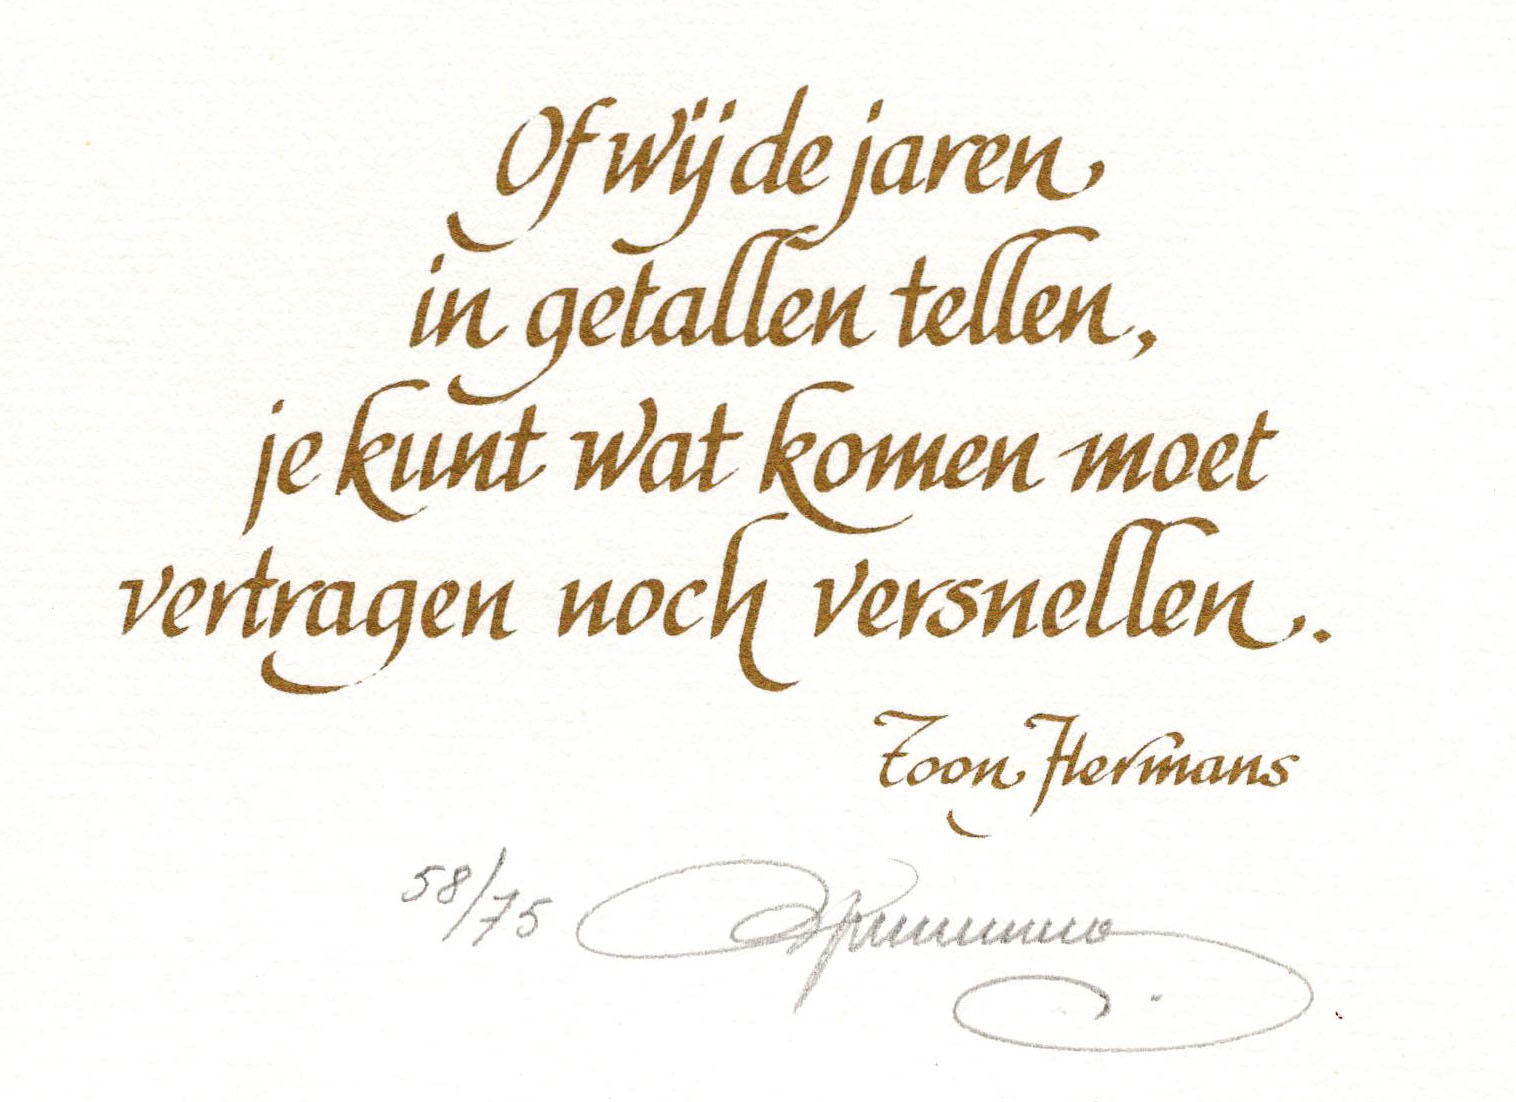 Of wij de jaren
in getallen tellen,
je kunt wat komen moet
vertragen noch versnellen.
Toon Hermans
58/75